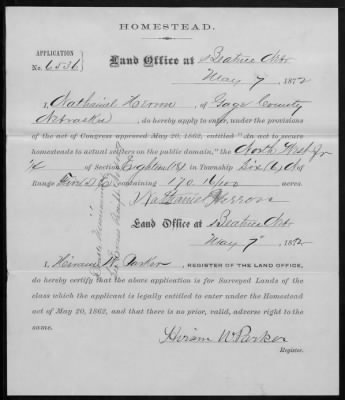 HOMESTEAD.
APPLICATION
No. 6536
Land Office at Beatrice Nebr
May 7" 1872
I, Nathaniel Herron, of Gage County
Nebraska, do hereby apply to enter, under the provisions
of the act of Congress approved May 20, 1862, entitled "An act to secure
homesteads to actual settlers on the public domain," the North West Qr
of Section Eighteen (18) in Township Six (6) of
Range containing 170 16/100 acres.
Nathaniel Herron
Land Office at Beatrice Nebr
May 7" 1872
I, Hiram W. Parker, REGISTER OF THE LAND OFFICE,
do hereby certify that the above application is for Surveyed Lands of the
class which the applicant is legally entitled to enter under the Homestead
act of May 20, 1862, and that there is no prior, valid, adverse right to
the same.
Hiram W Parker
Register.